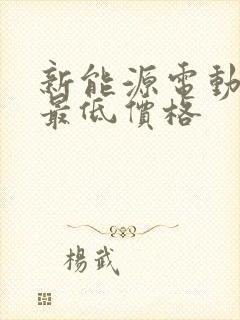 新能源電動
最低價格
楊武